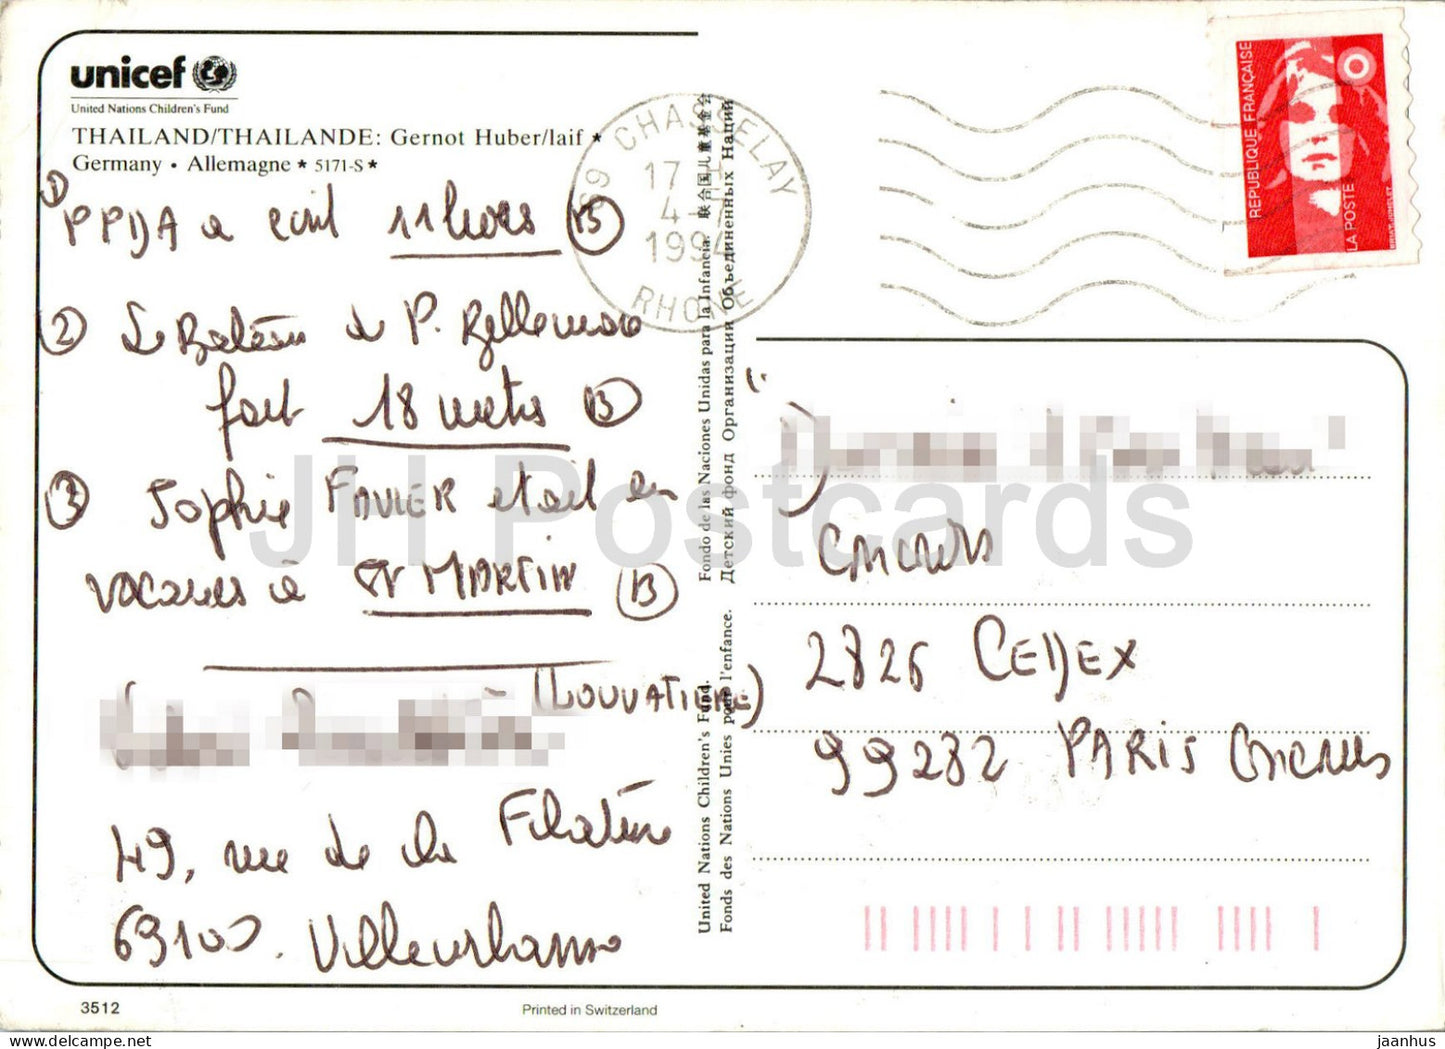 unicef
United Nations Children's Fund
THAILAND/THAILANDE: Gernot Huber/laif *
Germany • Allemagne * 5171-S *
① PPDA a écrit 11 livres Ⓑ
② Le Bateau de P. Bellemare
fait 18 metres Ⓑ
③ Sophie FAVIER etait en
vacances à St MARTIN Ⓑ
(LOUVATIERE)
49, rue de la Filature
69100. Villeurbanne
3512
Printed in Switzerland
United Nations Children's Fund. Fondo de las Naciones Unidas para la Infancia. 联合国儿童基金会
Fonds des Nations Unies pour l'enfance. Детский фонд Организации Объединенных Наций
69 CHASSELAY
17 H
1994
RHONE
REPUBLIQUE FRANÇAISE
LA POSTE
Concours
2826 CEDEX
99282 PARIS Concours
JH Postcards
jaanhus